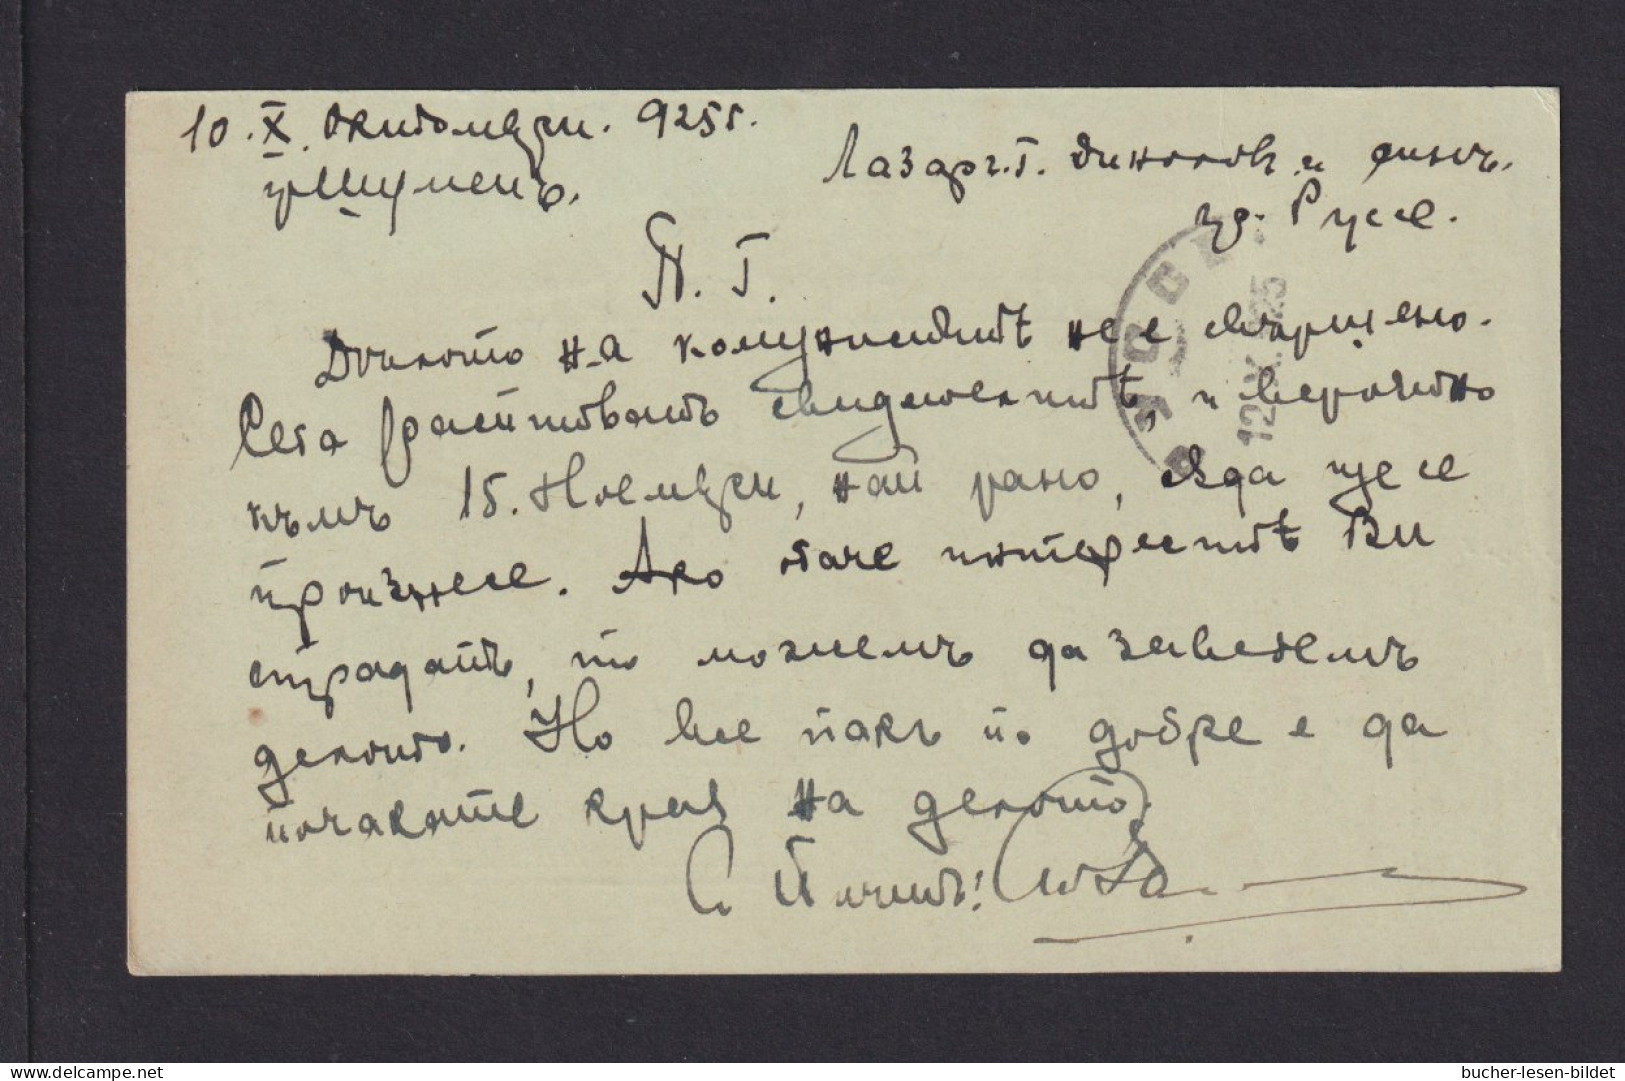 10. X. Октомврий. 925 г.
гр. Шуменъ.
Лазаръ Г. Динковъ и синъ.
гр. Русе.
П. Г.
Делото на комуниститѣ не е свършено.
Сега разпитватъ свидетелитѣ, и вероятно
къмъ 15. Ноемврий, най рано, сѫда ще се
произнесе. Ако обаче интереситѣ Ви
страдатъ, то можемъ да заведемъ
делото. Но все пакъ по добре е да
почакате края на делото.
Съ Почитъ!
РУСЕ
12.X.925
bucher-lesen-bildet
© delcampe.net